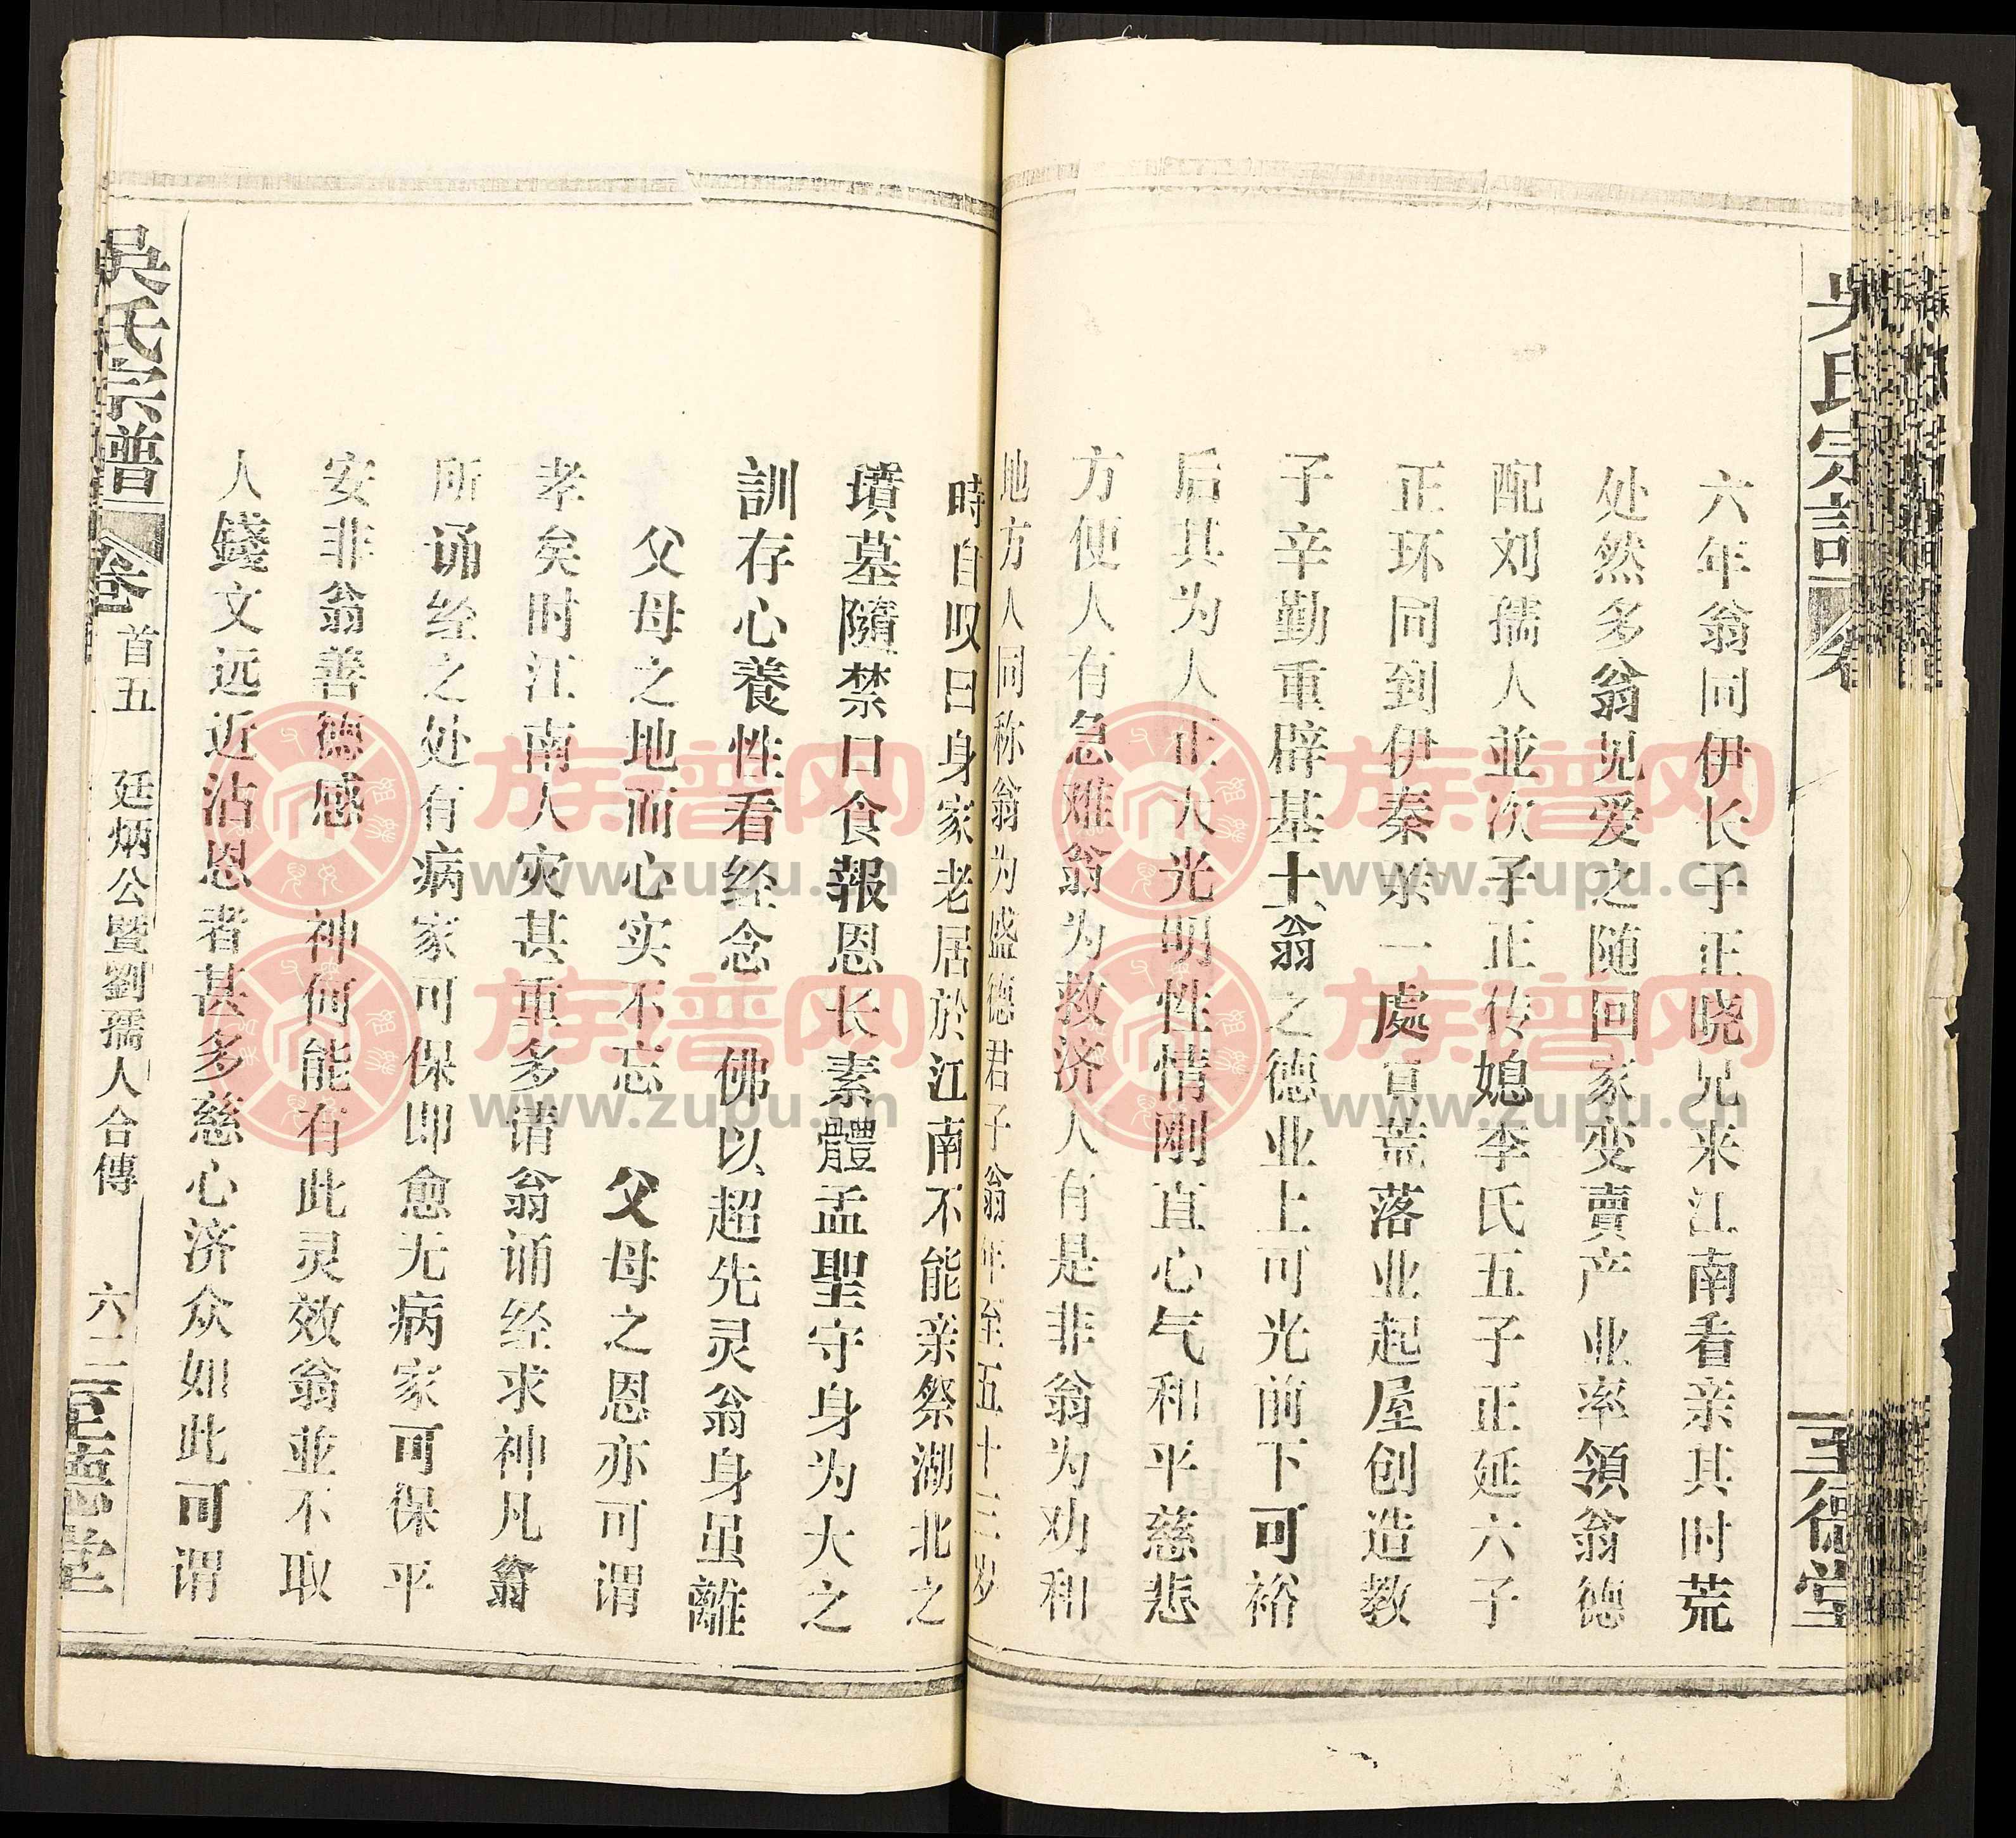 吴氏宗譜
卷
至德堂
六年翁同伊长子正晓兄来江南看亲其时荒
处然多翁见爱之随回家变賣产业率領翁德
配刘孺人並次子正传媳李氏五子正延六子
正环同到伊秦亲一處買荒落业起屋创造教
子辛勤重辟基土翁之德业上可光前下可裕
后其为人正大光明性情刚直心气和平慈悲
方便人有急难翁为救济人有是非翁为劝和
地方人同称翁为盛德君子翁年至五十三岁
時自叹曰身家老居於江南不能亲祭湖北之
墳墓隨禁口食報恩长素體孟聖守身为大之
訓存心養性看经念 佛以超先灵翁身虽離
父母之地而心实不忘 父母之恩亦可谓
孝矣时江南人灾甚重多请翁诵经求神凡翁
所诵经之处有病家可保即愈无病家可保平
安非翁善德感 神何能有此灵效翁並不取
人錢文远近沾恩者甚多慈心济众如此可谓
吳氏宗譜
卷
首五
廷炳公暨劉孺人合傳
六二
至惪堂
族谱网
www.zupu.cn
族谱网
www.zupu.cn
族谱网
www.zupu.cn
族谱网
www.zupu.cn